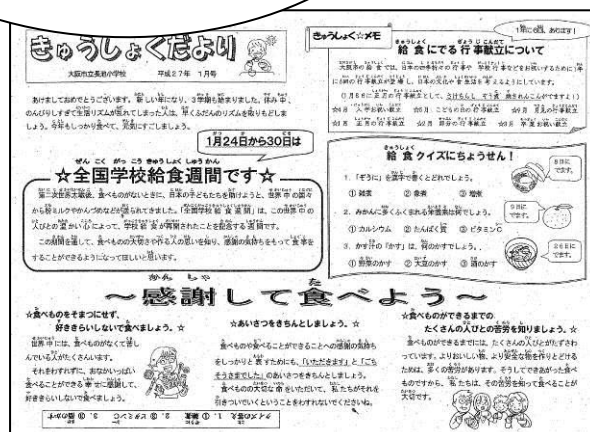 きゅうしょくだより
大阪市立長池小学校 平成27年 1月号
あけましておめでとうございます。新しい年になり、3学期も始まりました。休み中、
のんびりしすぎて生活リズムが乱れてしまった人は、早くふだんのリズムを取りもどしま
しょう。今年もしっかり食べて、元気にすごしましょう。
1月24日から30日は
ぜんこくがっこうきゅうしょくしゅうかん
☆全国学校給食週間です☆
第二次世界大戦後、食べものがないときに、日本の子どもたちを助けようと、世界中の国々
から粉ミルクやかんづめなどが送られてきました。「全国学校給食週間」は、この世界中の
人びとの温かい心によって、学校給食が再開されたことを記念する週間です。
この期間を通して、食べものの大切さや作る人の思いを知り、感謝の気持ちをもって食事を
することができるようになってほしいと思います。
きゅうしょく☆メモ
1年に6回、あります!
給食にでる行事献立について
大阪市の給食では、日本の四季折々の行事や学校行事などをお祝いするために1年
に6回の行事献立が登場し、日本の文化や食生活を考えるようにしています。
給食クイズにちょうせん!
1.「ぞうに」を漢字で書くとどれでしょう。
① 雑煮 ② 象煮 ③ 増煮
2.みかんに多くふくまれる栄養素は何でしょう。
① カルシウム ② たんぱく質 ③ ビタミンC
3.かす汁の「かす」は、何のかすでしょう。
① 野菜のかす ② 大豆のかす ③ 酒のかす
8日に
でます。
9日に
でます。
26日に
でます。
かんしゃ た
~感謝して食べよう~
☆食べものをそまつにせず、
好ききらいしないで食べましょう。☆
世界中には、食べものがなくて苦し
んでいる人がたくさんいます。
それをわすれずに、おなかいっぱい
食べることができる幸せに感謝して、
好ききらいしないで食べましょう。
☆あいさつをきちんとしましょう。☆
食べものや食べることができることへの感謝の気持ち
をしっかりと表すためにも、「いただきます」と「ごち
そうさまでした」のあいさつをきちんとしましょう。
食べものの大切な命をいただいて、私たちがそれを
引きついでいくということをわすれないでくださいね。
☆食べものができるまでの
たくさんの人びとの苦労を知りましょう。☆
食べものができるまでには、たくさんの人びとがたずさわ
っています。よりおいしい物、より安全な物を作りとどける
ためには、多くの苦労があります。そうしてできあがった食べ
ものですから、私たちは、その苦労を知って食べることが
大切です。
クイズの答え 1.① 雑煮 2.③ ビタミンC 3.③ 酒のかす